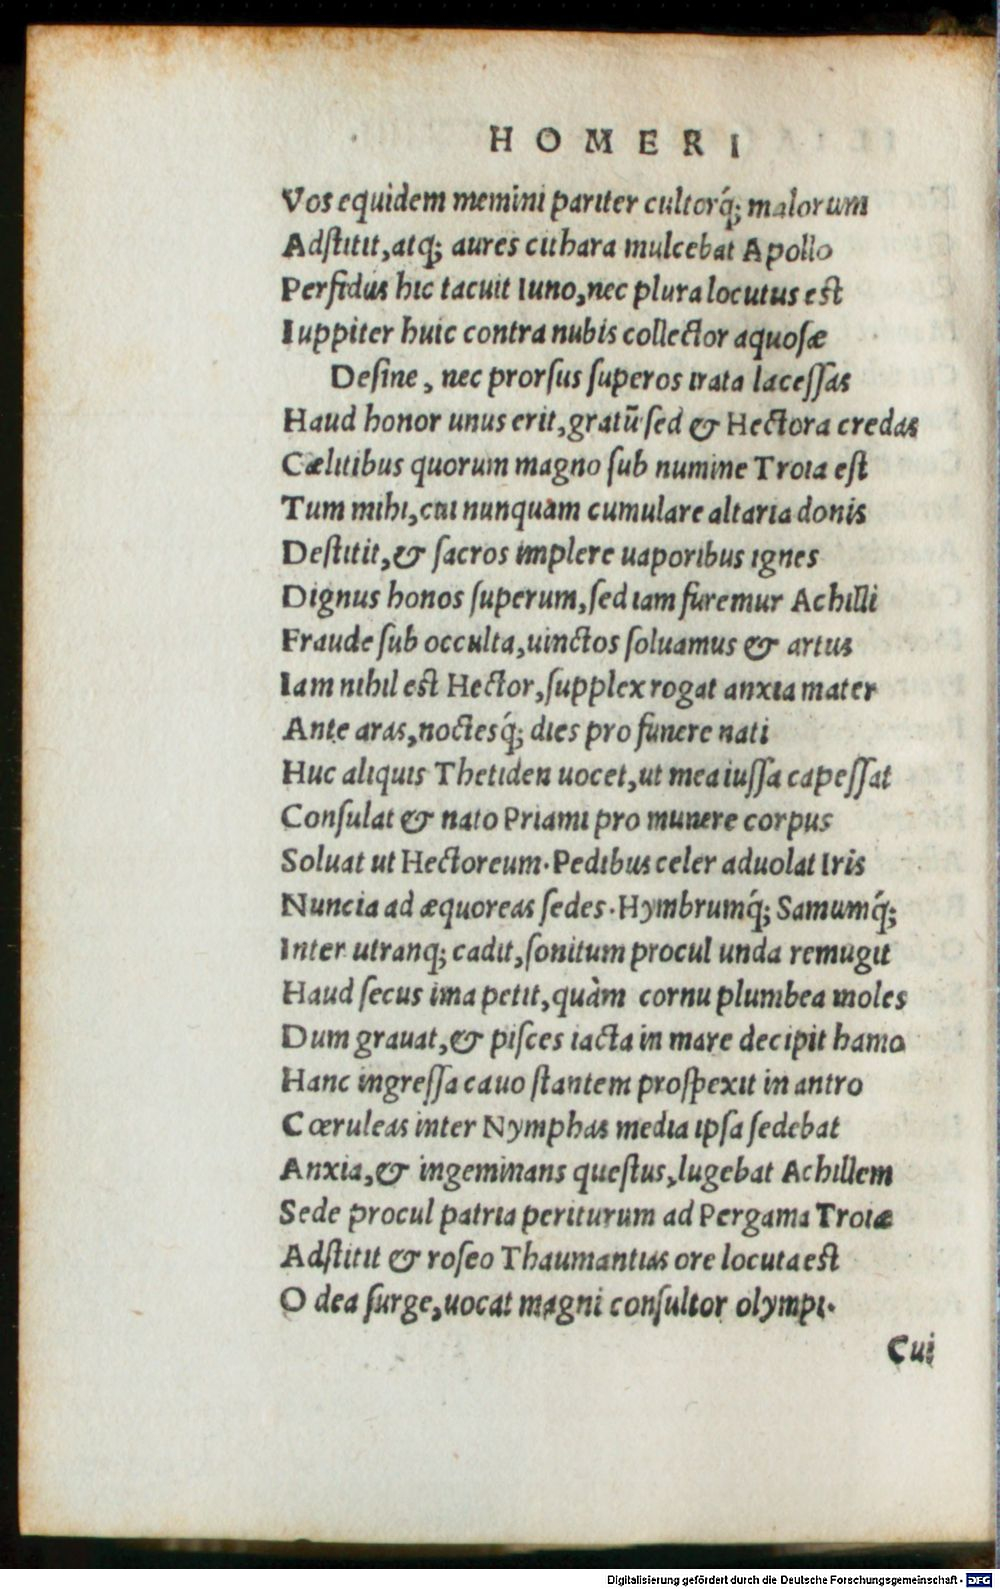 HOMERI
Vos equidem memini pariter cultorq́; malorum
Adſtitit, atq; aures cithara mulcebat Apollo
Perfidus hic tacuit Iuno, nec plura locutus eſt
Iuppiter huic contra nubis collector aquoſæ
Deſine, nec prorſus ſuperos irata laceſſas
Haud honor unus erit, gratū ſed & Hectora credas
Cælitibus quorum magno ſub numine Troia eſt
Tum mihi, cui nunquam cumulare altaria donis
Deſtitit, & ſacros implere uaporibus ignes
Dignus honos ſuperum, ſed iam furemur Achilli
Fraude ſub occulta, uinctos ſoluamus & artus
Iam nihil eſt Hector, ſupplex rogat anxia mater
Ante aras, noctesq́; dies pro funere nati
Huc aliquis Thetiden uocet, ut mea iuſſa capeſſat
Conſulat & nato Priami pro munere corpus
Soluat ut Hectoreum. Pedibus celer aduolat Iris
Nuncia ad æquoreas ſedes. Hymbrumq́; Samumq́;
Inter utranq; cadit, ſonitum procul unda remugit
Haud ſecus ima petit, quàm cornu plumbea moles
Dum grauat, & piſces iacta in mare decipit hamo
Hanc ingreſſa cauo ſtantem proſpexit in antro
Cœruleas inter Nymphas media ipſa ſedebat
Anxia, & ingeminans queſtus, lugebat Achillem
Sede procul patria periturum ad Pergama Troiæ
Adſtitit & roſeo Thaumantias ore locuta eſt
O dea ſurge, uocat magni conſultor olympi.
Cui
Digitalisierung gefördert durch die Deutsche Forschungsgemeinschaft - DFG